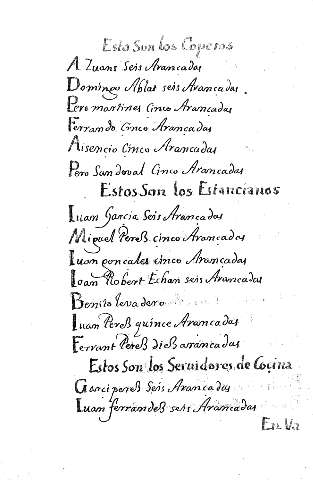 Estos Son los Coperos
A Zuans Seis Arancadas
Domingo Ablas seis Arancadas.
Pero martines Cinco Arancadas
Ferrando Cinco Arancadas
Aisencio Cinco Arancadas
Pero Sandoval Cinco Arancadas
Estos San los Estancianos
Iuan Garcia Seis Arancadas
Miguel Pereß cinco Arancadas
Iuan goncales cinco Arancadas
Ioan Robert Echan seis Arancadas
Benito levadero
Iuan Pereß quince Arancadas
Ferrant Pereß dieß arancadas
Estos Son los Seruidores de Cocina
Garci pereß Seis Arancadas
Iuan ferrandeß seis Arancadas
En Va